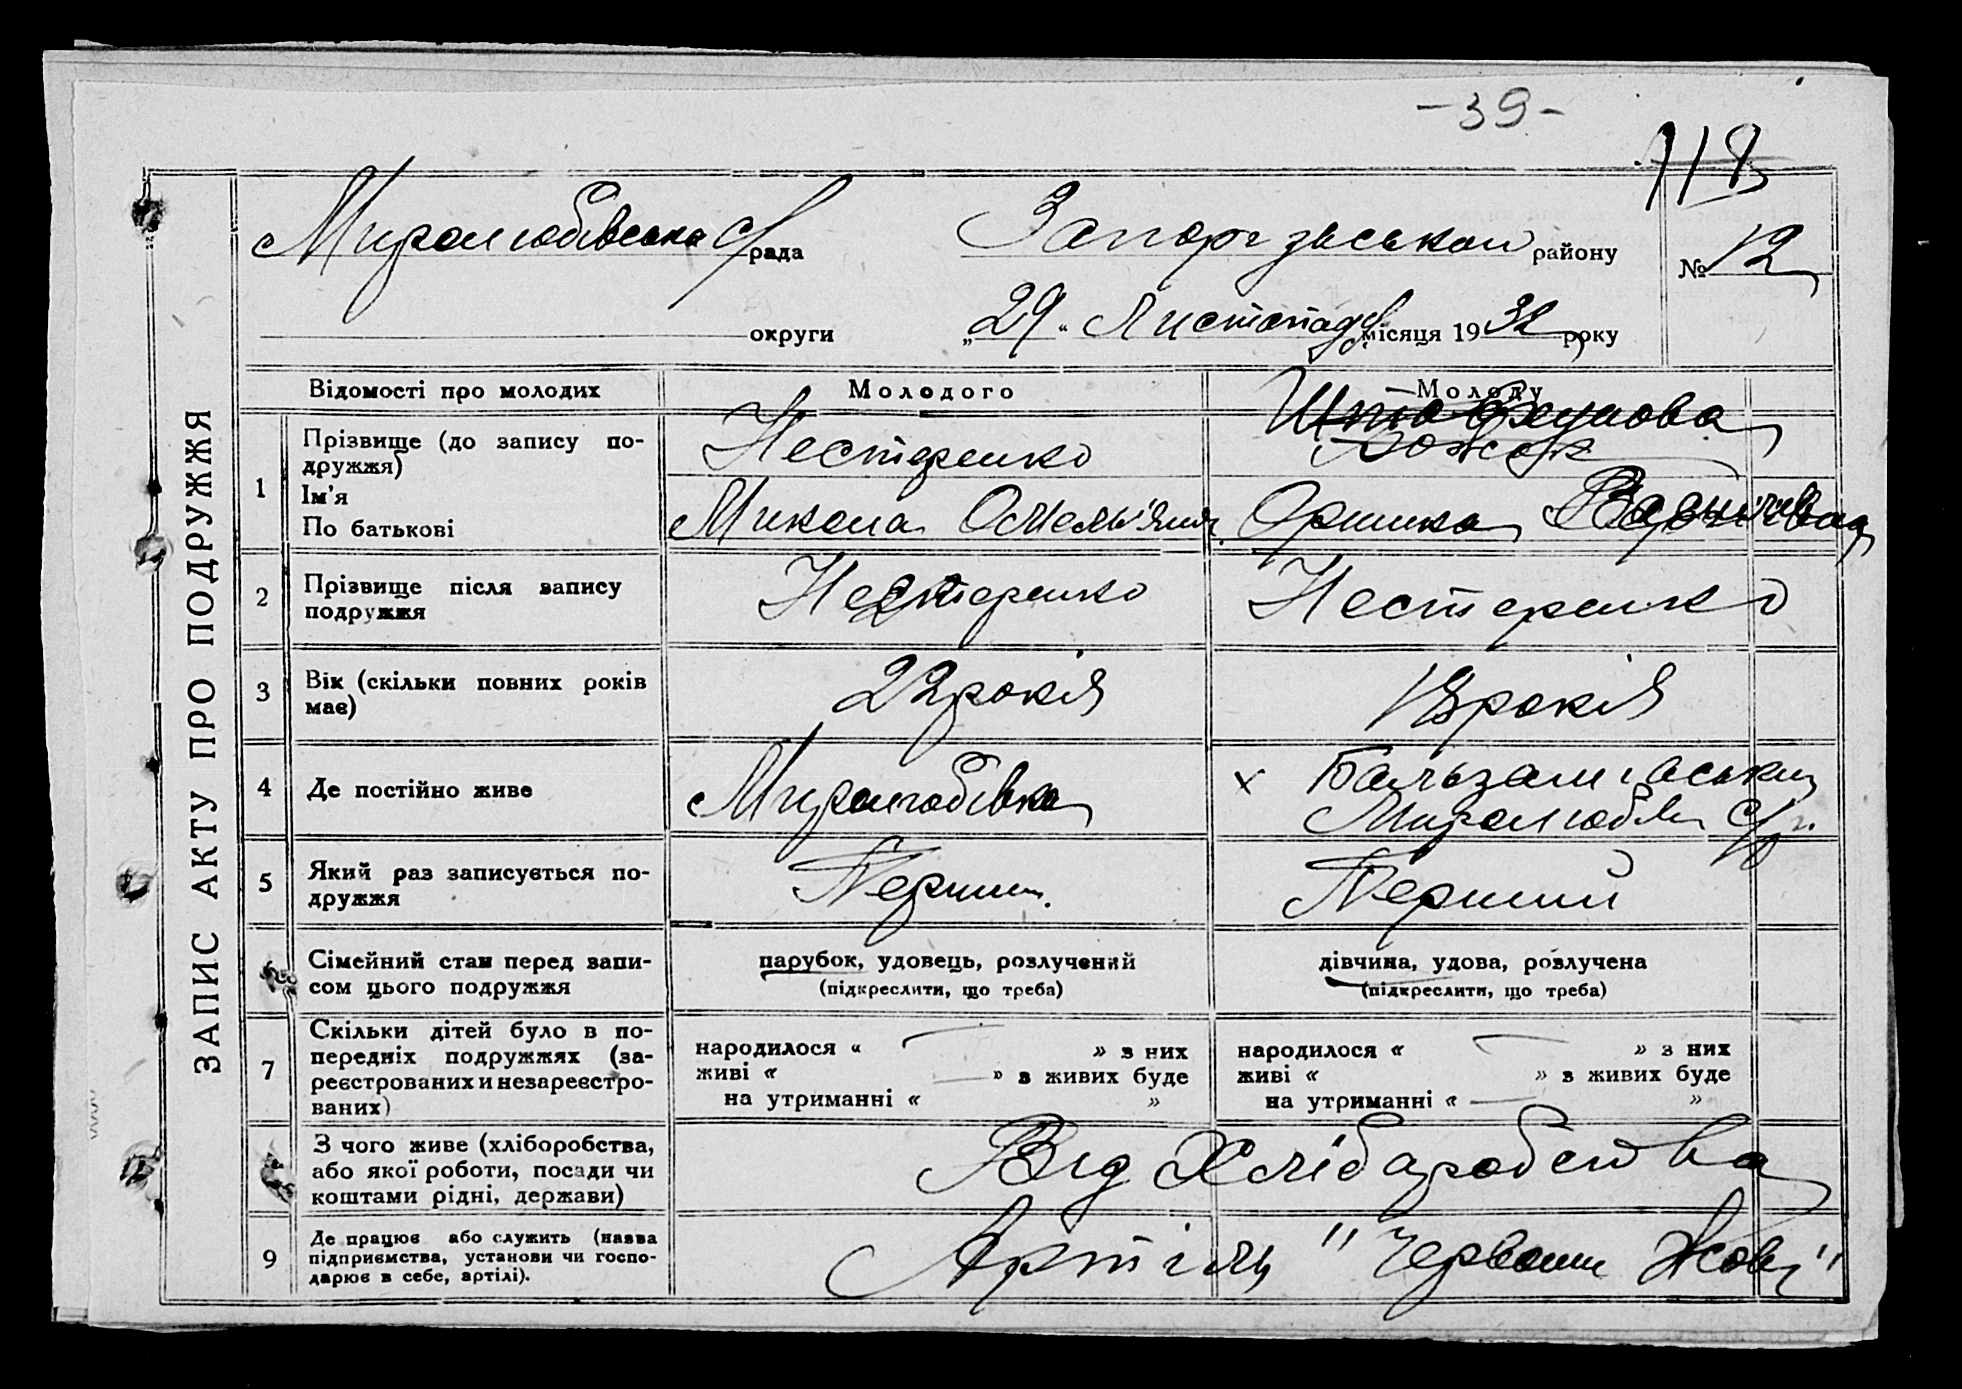 -39-
118
Миролюбівська с/рада Запорізьської району № 12
округи „29“ Листопаду місяця 1932 року
ЗАПИС АКТУ ПРО ПОДРУЖЖЯ
Відомості про молодих Молодого Молоду
1
Прізвище (до запису по-
дружжя)
Ім'я
По батькові
Нестеренко
Микола Омельянов
Оришка
2
Прізвище після запису
подружжя
Нестеренко Нестеренко
3
Вік (скільки повних років
має)
22 років 18 років
4
Де постійно живе
Миролюбівка
х
Миролюбів с/р.
5
Який раз записується по-
дружжя
Перший Перший
Сімейний стан перед запи-
сом цього подружжя
парубок, удовець, розлучений
(підкреслити, що треба)
дівчина, удова, розлучена
(підкреслити, що треба)
7
Скільки дітей було в по-
передніх подружжях (за-
реєстрованих и незареєстро-
ваних)
народилося « — » з них
живі « — » в живих буде
на утриманні « »
народилося « — » з них
живі « » в живих буде
на утриманні « — »
З чого живе (хліборобства,
або якої роботи, посади чи
коштами рідні, держави)
Від Хлібаробства
9
Де працює або служить (назва
підприємства, установи чи госпо-
дарює в себе, артілі).
Артіль "Червоний Жовт"